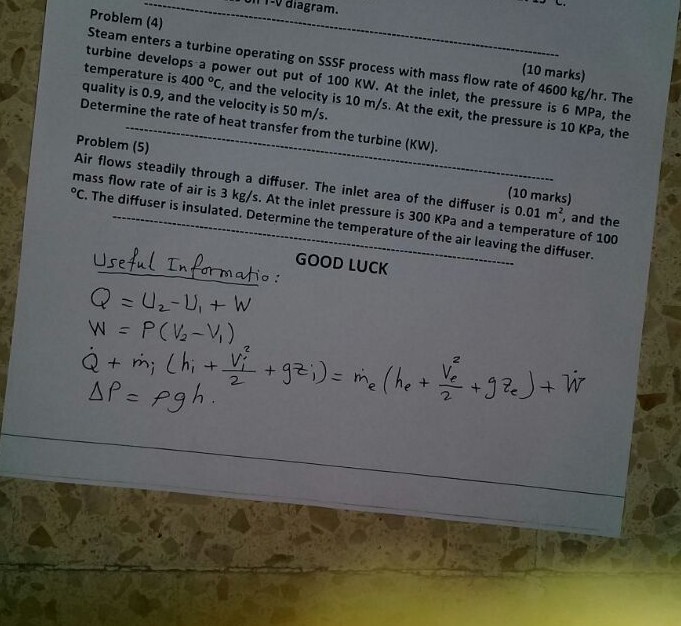 T-V diagram.
C.
Problem (4)
(10 marks)
Steam enters a turbine operating on SSSF process with mass flow rate of 4600 kg/hr. The
turbine develops a power out put of 100 KW. At the inlet, the pressure is 6 MPa, the
temperature is 400 °C, and the velocity is 10 m/s. At the exit, the pressure is 10 KPa, the
quality is 0.9, and the velocity is 50 m/s.
Determine the rate of heat transfer from the turbine (KW).
Problem (5)
(10 marks)
Air flows steadily through a diffuser. The inlet area of the diffuser is 0.01 m², and the
mass flow rate of air is 3 kg/s. At the inlet pressure is 300 KPa and a temperature of 100
°C. The diffuser is insulated. Determine the temperature of the air leaving the diffuser.
GOOD LUCK
Useful Informatio:
Q = U₂-U₁ + W
W = P(V₂-V₁)
Q̇ + ṁᵢ (hᵢ + Vᵢ²/2 + gzᵢ) = ṁₑ (hₑ + Vₑ²/2 + gzₑ) + Ẇ
ΔP = ρgh.